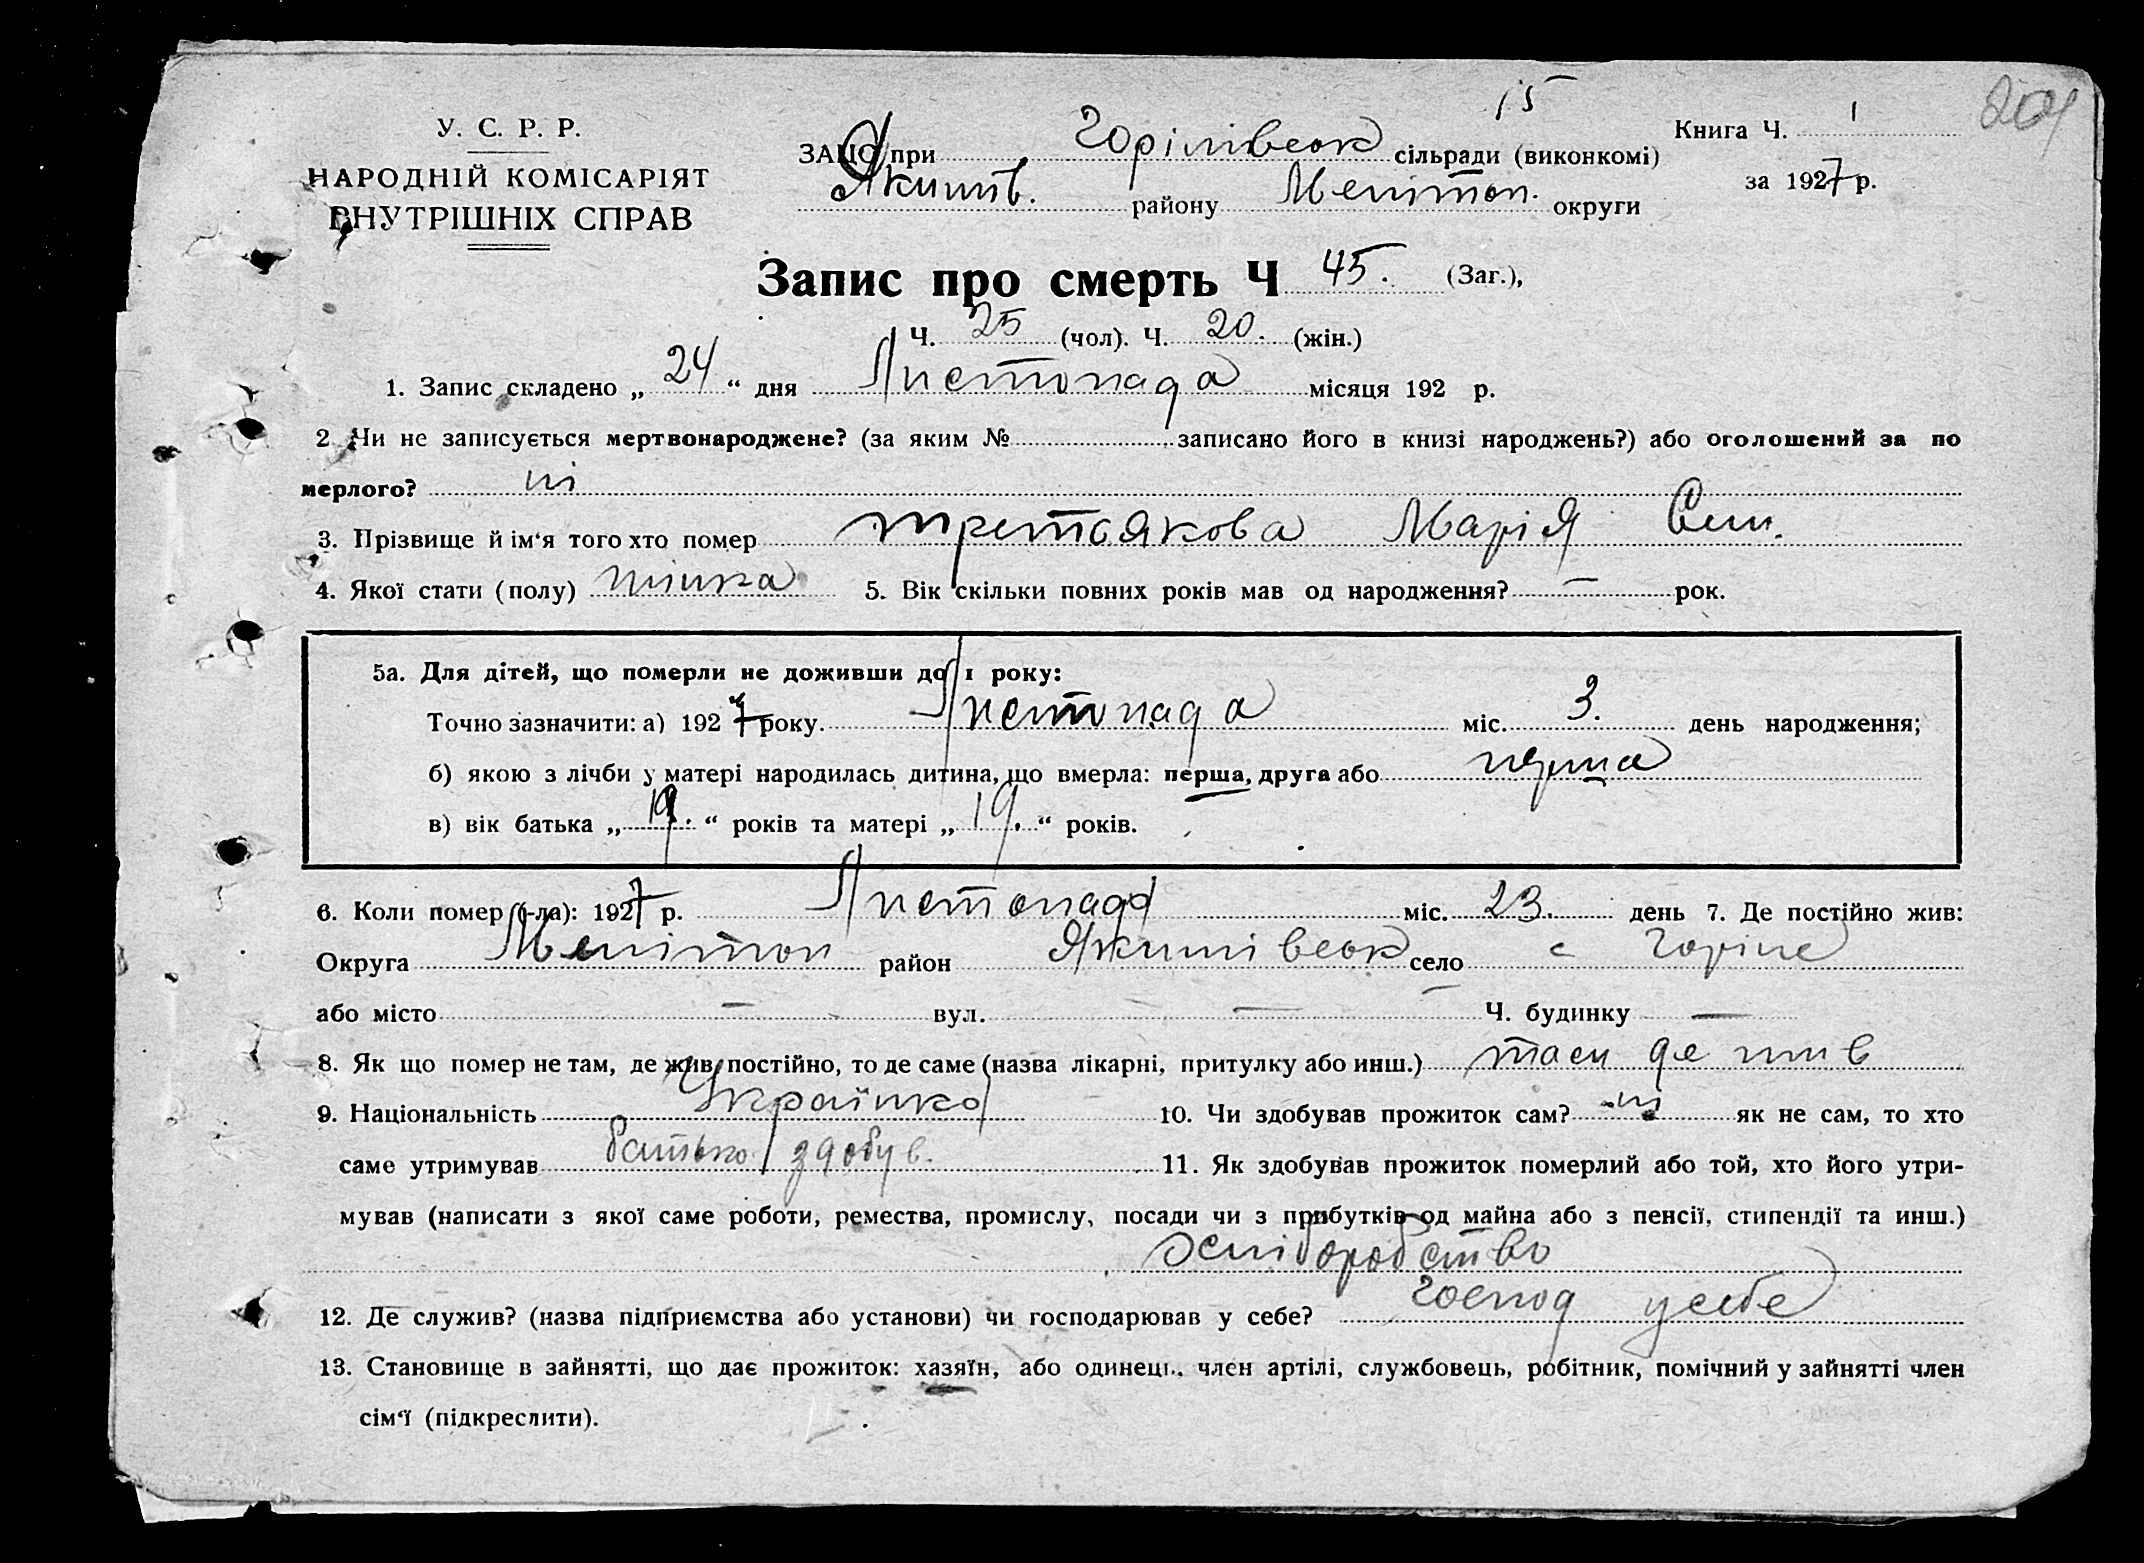 15
204
У. С. Р. Р.
НАРОДНІЙ КОМІСАРІЯТ
ВНУТРІШНІХ СПРАВ
ЗАЦС при Горілівськ сільради (виконкомі)
Якимів. району Мелітоп. округи
Книга Ч. 1
за 1927 р.
Запис про смерть Ч 45. (Заг.),
Ч. 25 (чол). Ч. 20. (жін.)
1. Запис складено „ 24 “ дня Листопада місяця 192 р.
2 Чи не записується мертвонароджене? (за яким № записано його в книзі народжень?) або оголошений за по
мерлого? ні
3. Прізвище й ім‘я того хто помер Третьякова Марія Сем.
4. Якої стати (полу) жінка 5. Вік скільки повних років мав од народження? — рок.
5а. Для дітей, що померли не доживши до 1 року:
Точно зазначити: а) 1927 року. Листопада міс. 3. день народження;
б) якою з лічби у матері народилась дитина, що вмерла: перша, друга або перша
в) вік батька „ 19. “ років та матері „ 19. “ років.
6. Коли помер (-ла): 1927 р. Листопада міс. 23. день 7. Де постійно жив:
Округа Мелітоп район Якимівськ село с Горіле
або місто — вул. — Ч. будинку —
8. Як що помер не там, де жив постійно, то де саме (назва лікарні, притулку або инш.) там де жив
9. Національність Українка 10. Чи здобував прожиток сам? ні як не сам, то хто
саме утримував батько здобув. 11. Як здобував прожиток померлий або той, хто його утри-
мував (написати з якої саме роботи, ремества, промислу, посади чи з прибутків од майна або з пенсії, стипендії та инш.)
хліборобство
12. Де служив? (назва підприємства або установи) чи господарював у себе? Господ у себе
13. Становище в зайнятті, що дає прожиток: хазяїн, або одинець, член артілі, службовець, робітник, помічний у зайнятті член
сім‘ї (підкреслити).